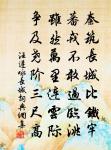 秦筑長城比鐵牢
蕃戎不敢過臨洮
雖然萬里連雲際
爭及堯階三尺高
汪遵詠長城